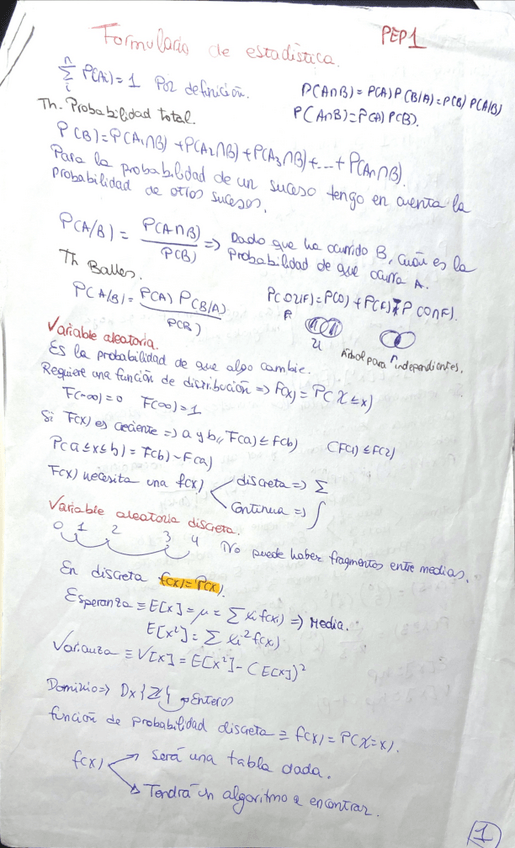 Formulario de estadística.
PEP1
n
∑ P(Ai) = 1 Por definición.
i
P(A∩B) = P(A) P(B/A) = P(B) P(A/B)
P(A∩B) = P(A) P(B).
Th. Probabilidad total.
P(B) = P(A1∩B) + P(A2∩B) + P(A3∩B) + ... + P(An∩B).
Para la probabilidad de un suceso tengo en cuenta la
probabilidad de otros sucesos.
P(A/B) = P(A∩B) / P(B) => Dado que ha ocurrido B, cuán es la
probabilidad de que ocurra A.
Th Balles.
P(A/B) = P(A) P(B/A) / P(B)
P(OUF) = P(O) + P(F) P(O∩F).
Árbol para independientes.
Variable aleatoria.
Es la probabilidad de que algo cambie.
Requiere una función de distribución => F(x) = P(X ≤ x)
F(-∞) = 0 F(∞) = 1
Si F(x) es creciente => a y b, F(a) ≤ F(b) CF(1) ≤ F(2)
P(a ≤ x ≤ b) = F(b) - F(a)
F(x) necesita una f(x)
discreta => ∑
Continua => ∫
Variable aleatoria discreta.
0 1 2 3 4 No puede haber fragmentos entre medias.
En discreta f(x) = P(x).
Esperanza ≡ E[x] = μ = ∑ xi f(xi) => Media.
E[x²] = ∑ xi² f(xi)
Varianza ≡ V[x] = E[x²] - (E[x])²
Dominio => Dx {Z} Enteros
función de probabilidad discreta ≡ f(x) = P(X = x).
f(x)
Será una tabla dada.
Tendrá un algoritmo a encontrar.
1